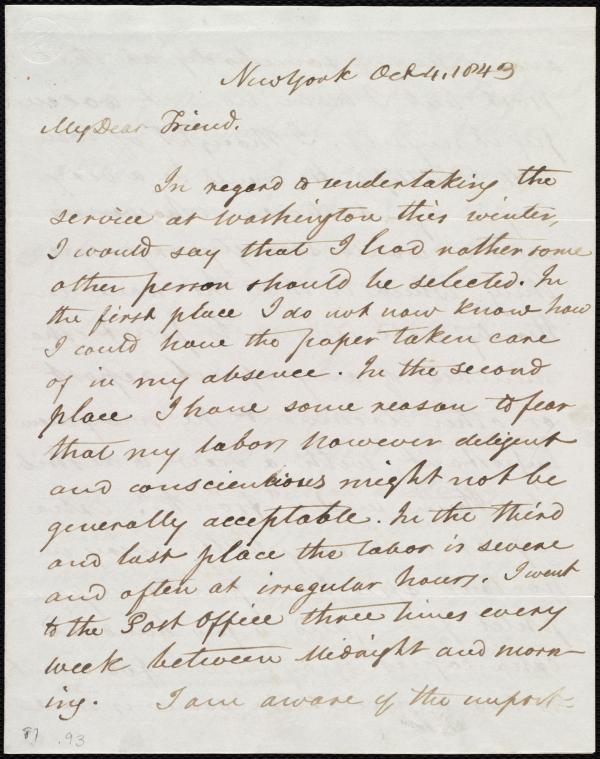 New York Oct 4, 1843
My Dear Friend.
In regard to undertaking the
service at Washington this winter,
I would say that I had rather some
other person should be selected. In
the first place I do not now know how
I could have the paper taken care
of in my absence. In the second
place I have some reason to fear
that my labor, however deligent
and conscientious might not be
generally acceptable. In the third
and last place the labor is severe
and often at irregular hours. I went
to the Post Office three times every
week between Midnight and morn-
ing. I am aware of the import-
.93